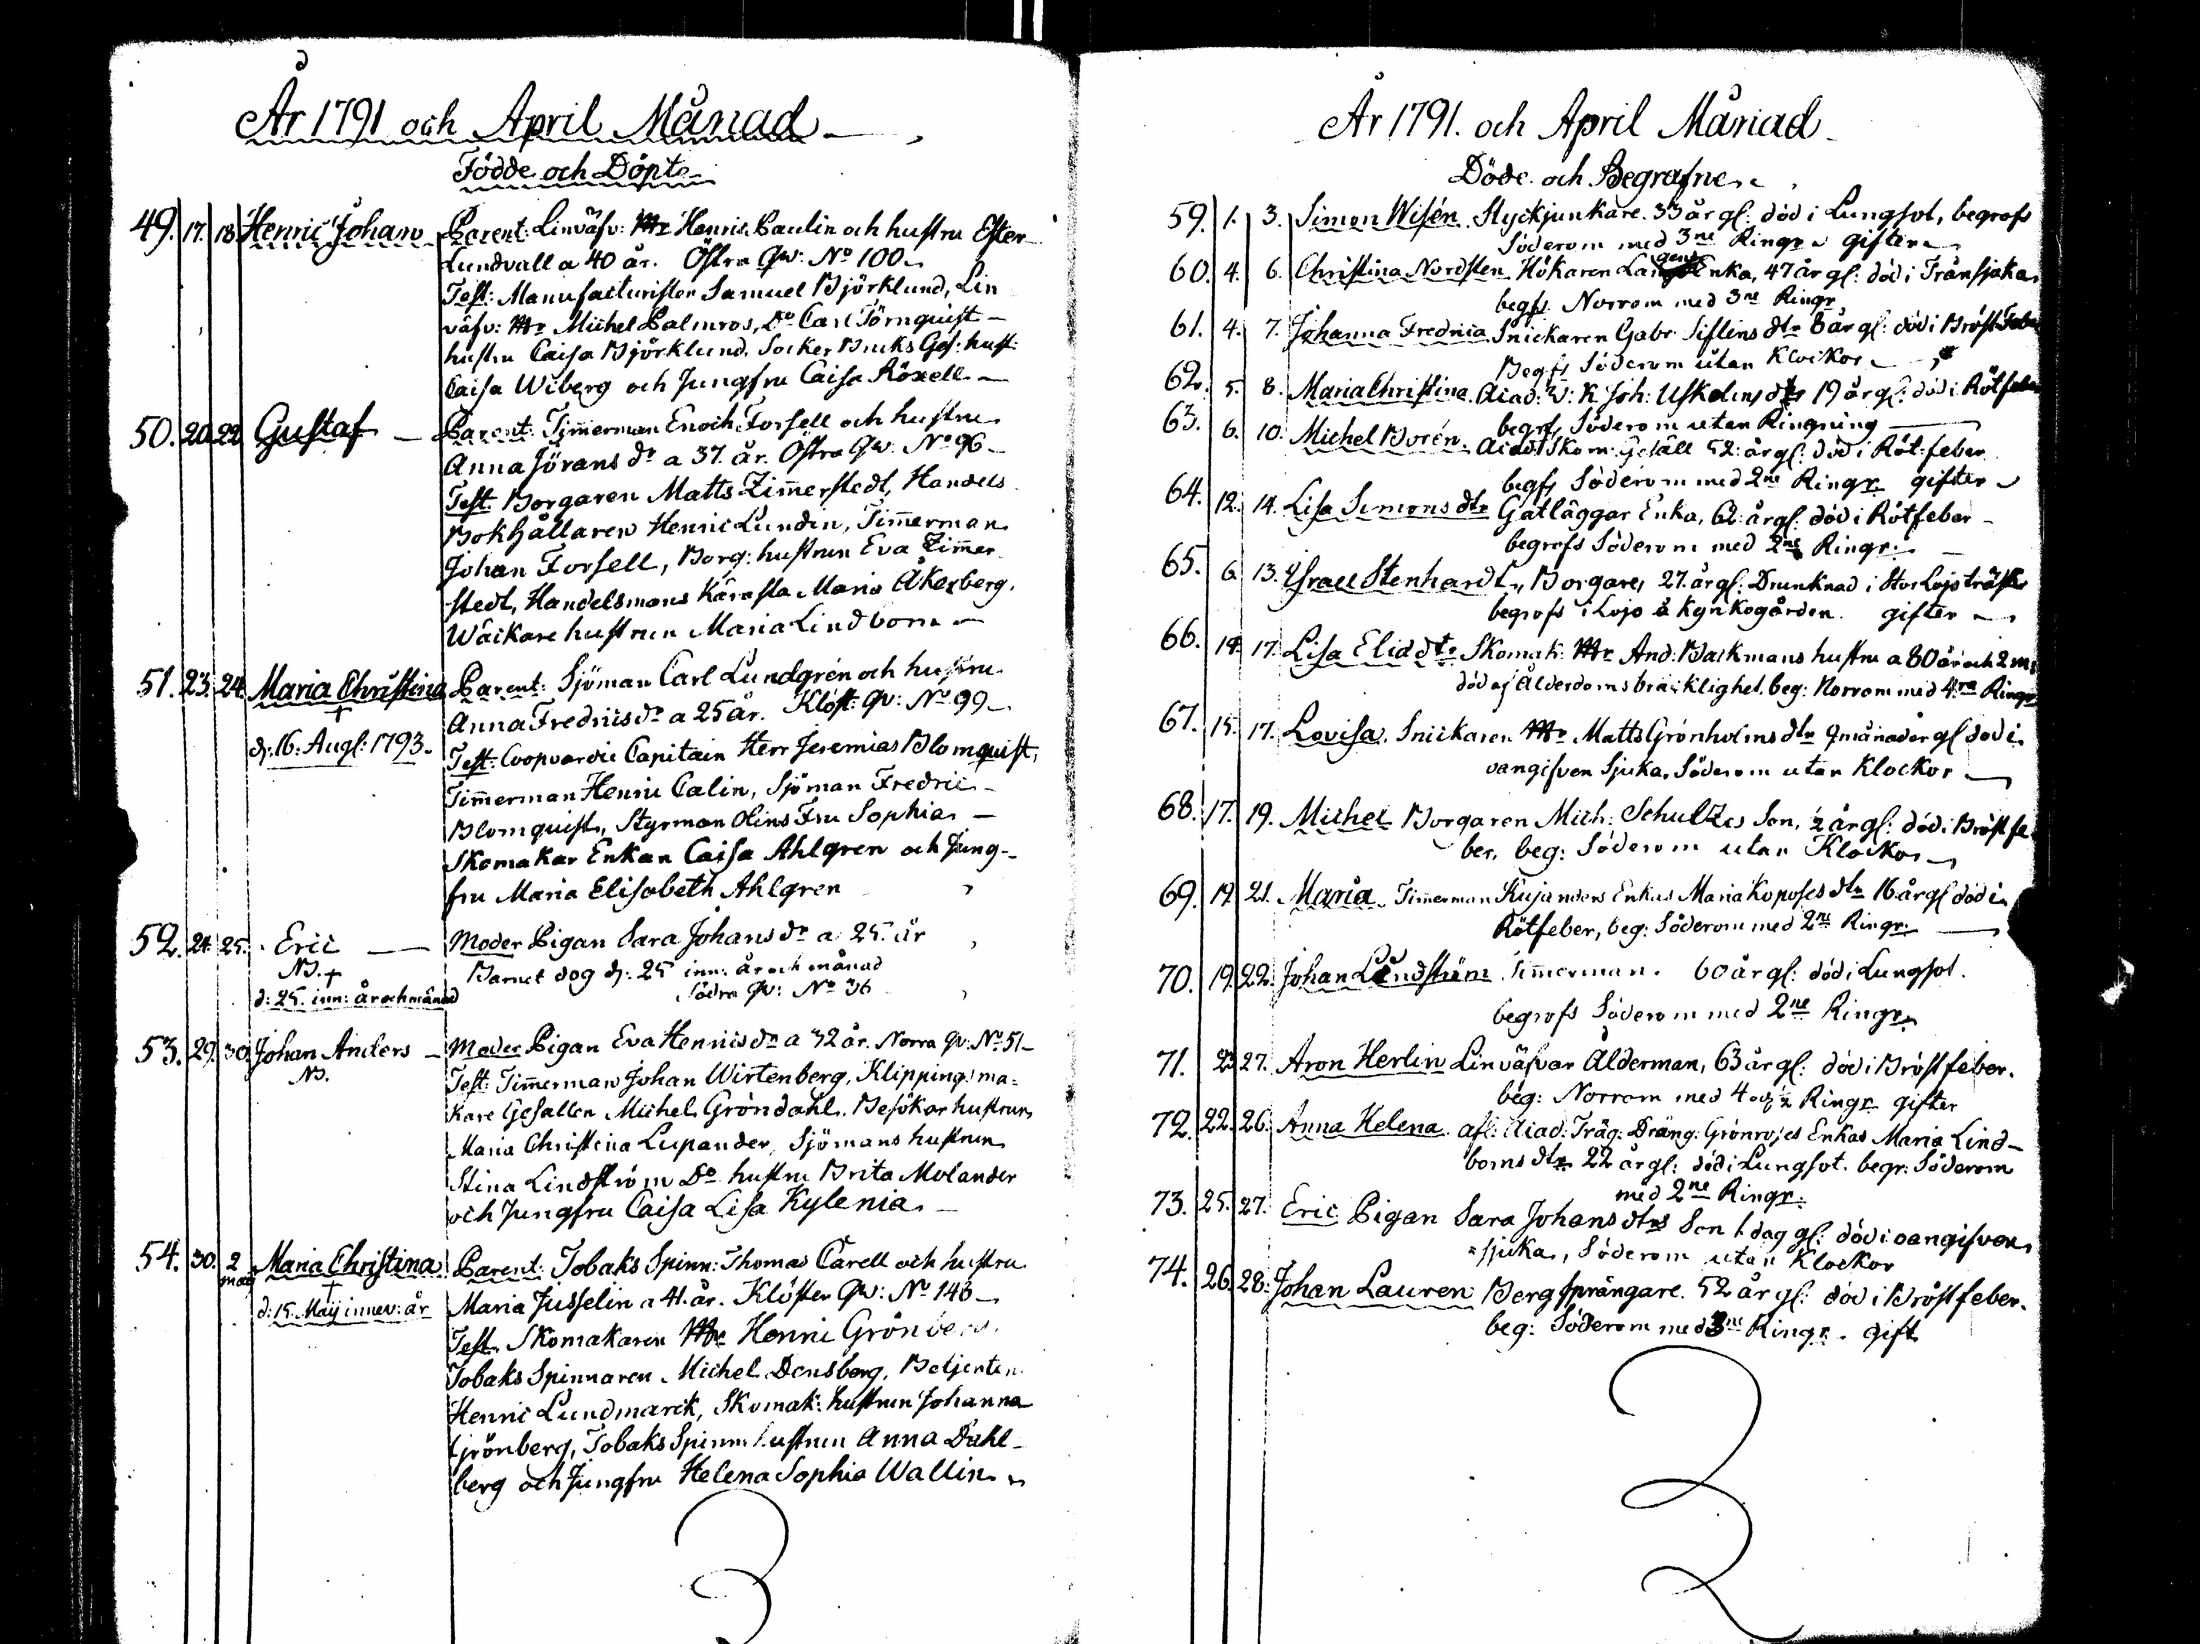 År 1791 och April Månad
Födde och Döpte
49. 17. 18. Henric Johan Parent: Linväfv: Mr Henric Paulin och hustru Ester
Lundvall a 40 år. Östra Qv: No 100
Test: Manufacturisten Samuel Björklund, Lin
väfv: Mr Michel Palmros, Do Carl Törnquist
hustru Caisa Björklund, Socker Bruks Ges: hust:
Caisa Wiberg och Jungfru Caisa Röxell
50. 20. 22. Gustaf Parent: Timmerman Enoch Forsell och hustru
Anna Jörans dr a 37. år. Östra Qv: No 96
Test: Borgaren Matts Zimmerstedt, Handels
Bokhållaren Henric Lundin, Timmerman
Johan Forsell, Borg: hustrun Eva Zimmer
stedt, Handelsmans Kärasta Maria Åkerberg,
Wäckare hustrun Maria Lindbom
51. 23. 24. Maria Christina Parent: Sjöman Carl Lundgrén och hustru
Anna Fredricsdr a 25 år. Klöst: Qv: No 99
d. 16: Aug: 1793. Test: Coopvardie Capitain Herr Jeremias Blomquist,
Timmerman Henric Calin, Sjöman Fredric
Blomquist, Styrman Olins Fru Sophia
Skomakar Enkan Caisa Ahlgren och Jung-
fru Maria Elisabeth Ahlgren
52. 24. 25. Eric Moder Pigan Sara Johans dr a 25. år
NB. † Barnet dog d: 25 inn: år och månad
d: 25. inn: år och månad Södra Qv: No 36
53. 29. 30. Johan Anders Moder Pigan Eva Henricsdr a 32 år. Norra Qv: No 51
NB. Test: Timmerman Johan Wirtenberg, Klipping: ma=
kare Gesällen Michel Gröndahl. Besökar hustrun
Maria Christina Lupander, Sjömans hustrun
Stina Lindström Do hustru Brita Molander
och Jungfru Caisa Lisa Kylenia
54. 30. 2 maij Maria Christina Parent: Tobaks Spinn: Thomas Carell och hustru
d: 15. Maij innev: år Maria Jusselin a 41. år. Klöster Qv: No 146
Test. Skomakaren Mr Henric Grönberg.
Tobaks Spinnaren Michel Densberg, Betjenten
Henric Lundmarck, Skomak: hustrun Johanna
Grönberg, Tobaks Spinn: hustrun Anna Dahl-
berg och Jungfru Helena Sophia Wallin
År 1791. och April Månad
Döde och Begrafne
59. 1. 3. Simon Wisén Styckjunkare. 33 år gl: död i Lungsot, begrofs
Söderom med 3ne Ringr gifter
60. 4. 6. Christina Nordsten Hökaren Enka, 47 år gl: död i Trånsjuka
begfs Norrom med 3ne Ringr
61. 4. 7. Johanna Fredrica Snickaren Gabr: dtr 8 år gl: död i Bröst Feber
Begfs Söderom utan Klockor
62. 5. 8. Maria Christina. Acad: W: K Joh: dtr 19 år gl: död i Rötfeber
begrfs Söderom utan Ringning
63. 6. 10. Michel Borén. Skom: Gesäll 52: år gl: död i Röt: feber
begfs Söderom med 2ne Ringr gifter
64. 12. 14. Lisa Simons dtr Gatläggar Enka, 62 år gl: död i Rötfeber
begrofs Söderom med 2ne Ringr.
65. 6. 13. Israel Stenhardt, Borgare, 27. år gl: Drunknad i Stor Lojo träsk
begrofs i Lojo å Kyrkogården. gifter
66. 14. 17. Lisa Elia dtr Skomak: Mr And: Backmans hustru a 80 år och 2 m:
död af Ålderdoms bräcklighet, beg: Norrom med 4:ra Ringr
67. 15. 17. Lovisa. Snickaren Mr Matts Grönholms dtr 9 månader gl död i
oangifven Sjuka, Söderom utan Klockor
68. 17. 19. Michel Borgaren Mich: Schultzes Son, ½ år gl: död i Bröst fe
ber, beg: Söderom utan Klockor
69. 19. 21. Maria Timmerman Kujanders Enkas Maria Koposes dtr 16 år gl död i
Rötfeber, beg: Söderom med 2ne Ringr.
70. 19. 22. Johan Lindström Timmerman. 60 år gl: död i Lungsot.
begrofs Söderom med 2ne Ringr
71. 23. 27. Aron Herlin Linväfvar Ålderman, 63 år gl: död i Bröst feber.
beg: Norrom med 4 och ½ Ringr gifter
72. 22. 26. Anna Helena afl: Acad: Träg: Dräng: Enkas Maria Lind-
boms dtr 22 år gl: död i Lungsot. begr: Söderom
med 2ne Ringr.
73. 25. 27. Eric Pigan Sara Johans dtrs Son 1 dag gl: död i oangifven
=sjuka, Söderom utan Klockor
74. 26. 28. Johan Lauren Berg sprängare. 52 år gl: död i Bröst feber.
beg: Söderom med 3ne Ringr. gift